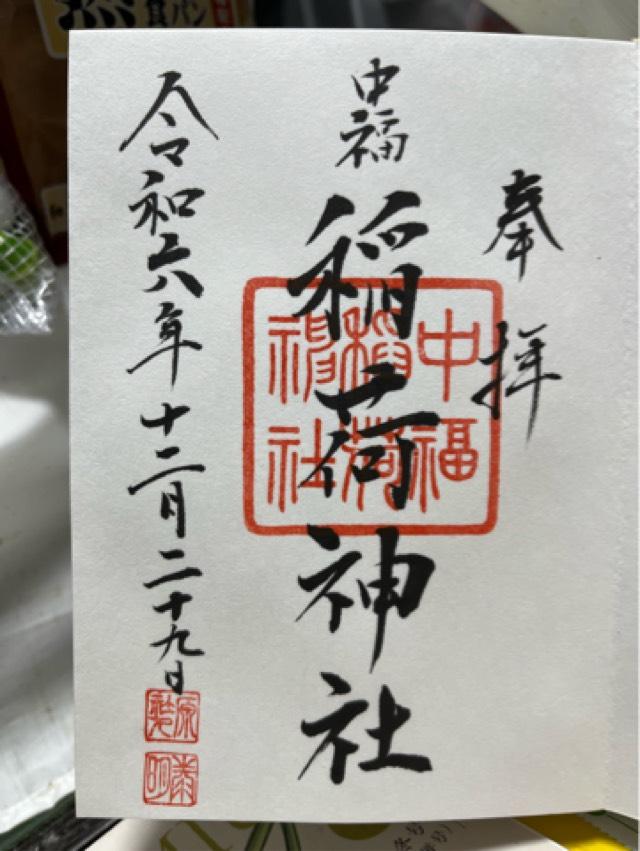 奉拝
中福
稲荷神社
令和六年十二月二十九日
中福
稲荷
神社
食パン